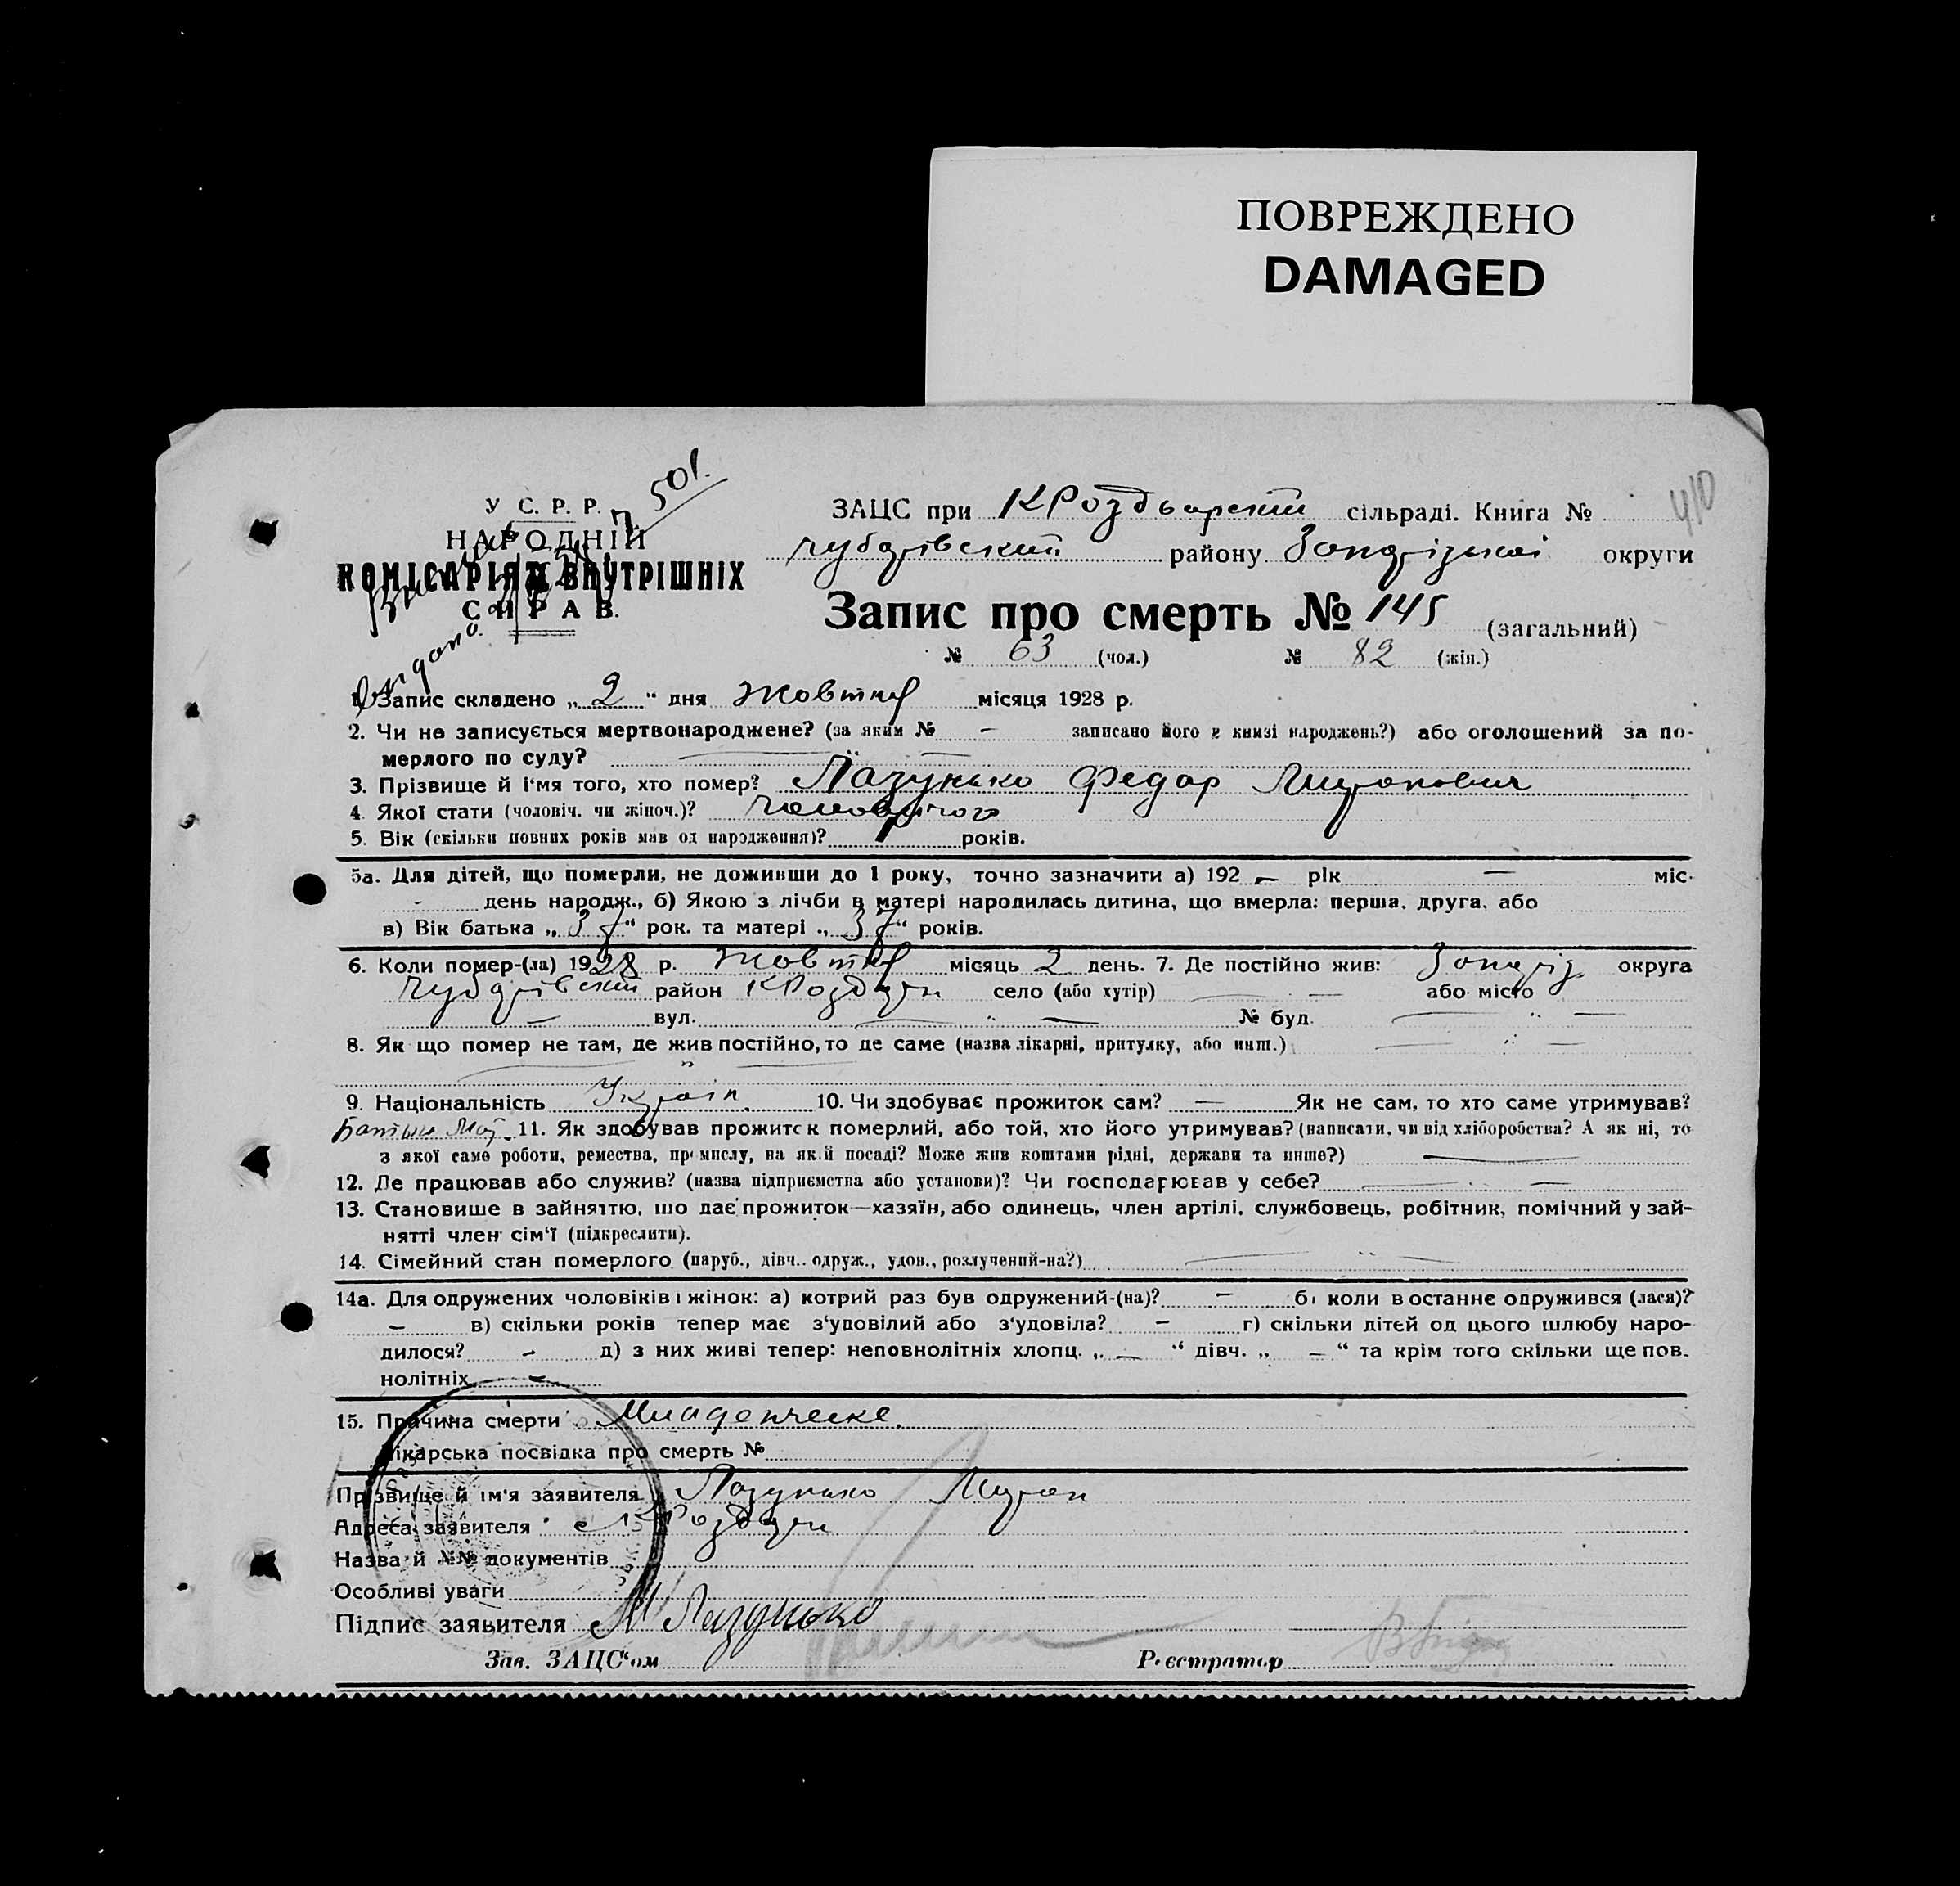 ПОВРЕЖДЕНО
DAMAGED
410
501.
У С. Р. Р.
НАРОДНІЙ
КОМІСАРІЯТ ВНУТРІШНІХ
СПРАВ.
ЗАЦС при сільраді. Книга №
району округи
Запис про смерть № 145 (загальний)
№ 63 (чол.) № 82 (жін.)
1. Запис складено „ 2 “ дня жовтня місяця 1928 р.
2. Чи не записується мертвонароджене? (за яким № – записано його в книзі народжень?) або оголошений за по-
мерлого по суду?
3. Прізвище й ім'я того, хто помер? Лазунько Федор Миронович
4. Якої стати (чоловіч. чи жіноч.)? чоловічого
5. Вік (скільки повних років мав од народження)? 1 років.
5а. Для дітей, що померли, не доживши до 1 року, точно зазначити а) 192 – рік – міс.
- день народж., б) Якою з лічби в матері народилась дитина, що вмерла: перша, друга, або
в) Вік батька „ 37 “ рок. та матері „ 37 “ років.
6. Коли помер-(ла) 1928 р. жовтня місяць 2 день. 7. Де постійно жив: округа
район село (або хутір) — або місто
— вул. — № буд. —
8. Як що помер не там, де жив постійно, то де саме (назва лікарні, притулку, або инш.)
9. Національність Україн. 10. Чи здобуває прожиток сам? — Як не сам, то хто саме утримував?
Батько 11. Як здобував прожиток померлий, або той, хто його утримував? (написати, чи від хліборобства? А як ні, то
з якої саме роботи, ремества, промислу, на якій посаді? Може жив коштами рідні, держави та инше?) —
12. Де працював або служив? (назва підприємства або установи)? Чи господарював у себе? —
13. Становище в зайняттю, що дає прожиток—хазяїн, або одинець, член артілі, службовець, робітник, помічний у зай-
нятті член сім'ї (підкреслити).
14. Сімейний стан померлого (паруб., дівч., одруж., удов., розлучений-на?)
14а. Для одружених чоловіків і жінок: а) котрий раз був одружений-(на)? – б) коли востаннє одружився (лася)?
– в) скільки років тепер має з'удовілий або з'удовіла? – г) скільки дітей од цього шлюбу наро-
дилося? - д) з них живі тепер: неповнолітніх хлопц. „ — “ дівч. „ – “ та крім того скільки ще пов-
нолітніх –
15. Причина смерти Младенческе.
Лікарська посвідка про смерть №
Прізвище й ім'я заявителя Лазунько Мирон
Адреса заявителя
Назва й №№ документів
Особливі уваги
Підпис заявителя М Лазунько
Зав. ЗАЦС'ом Реєстратор